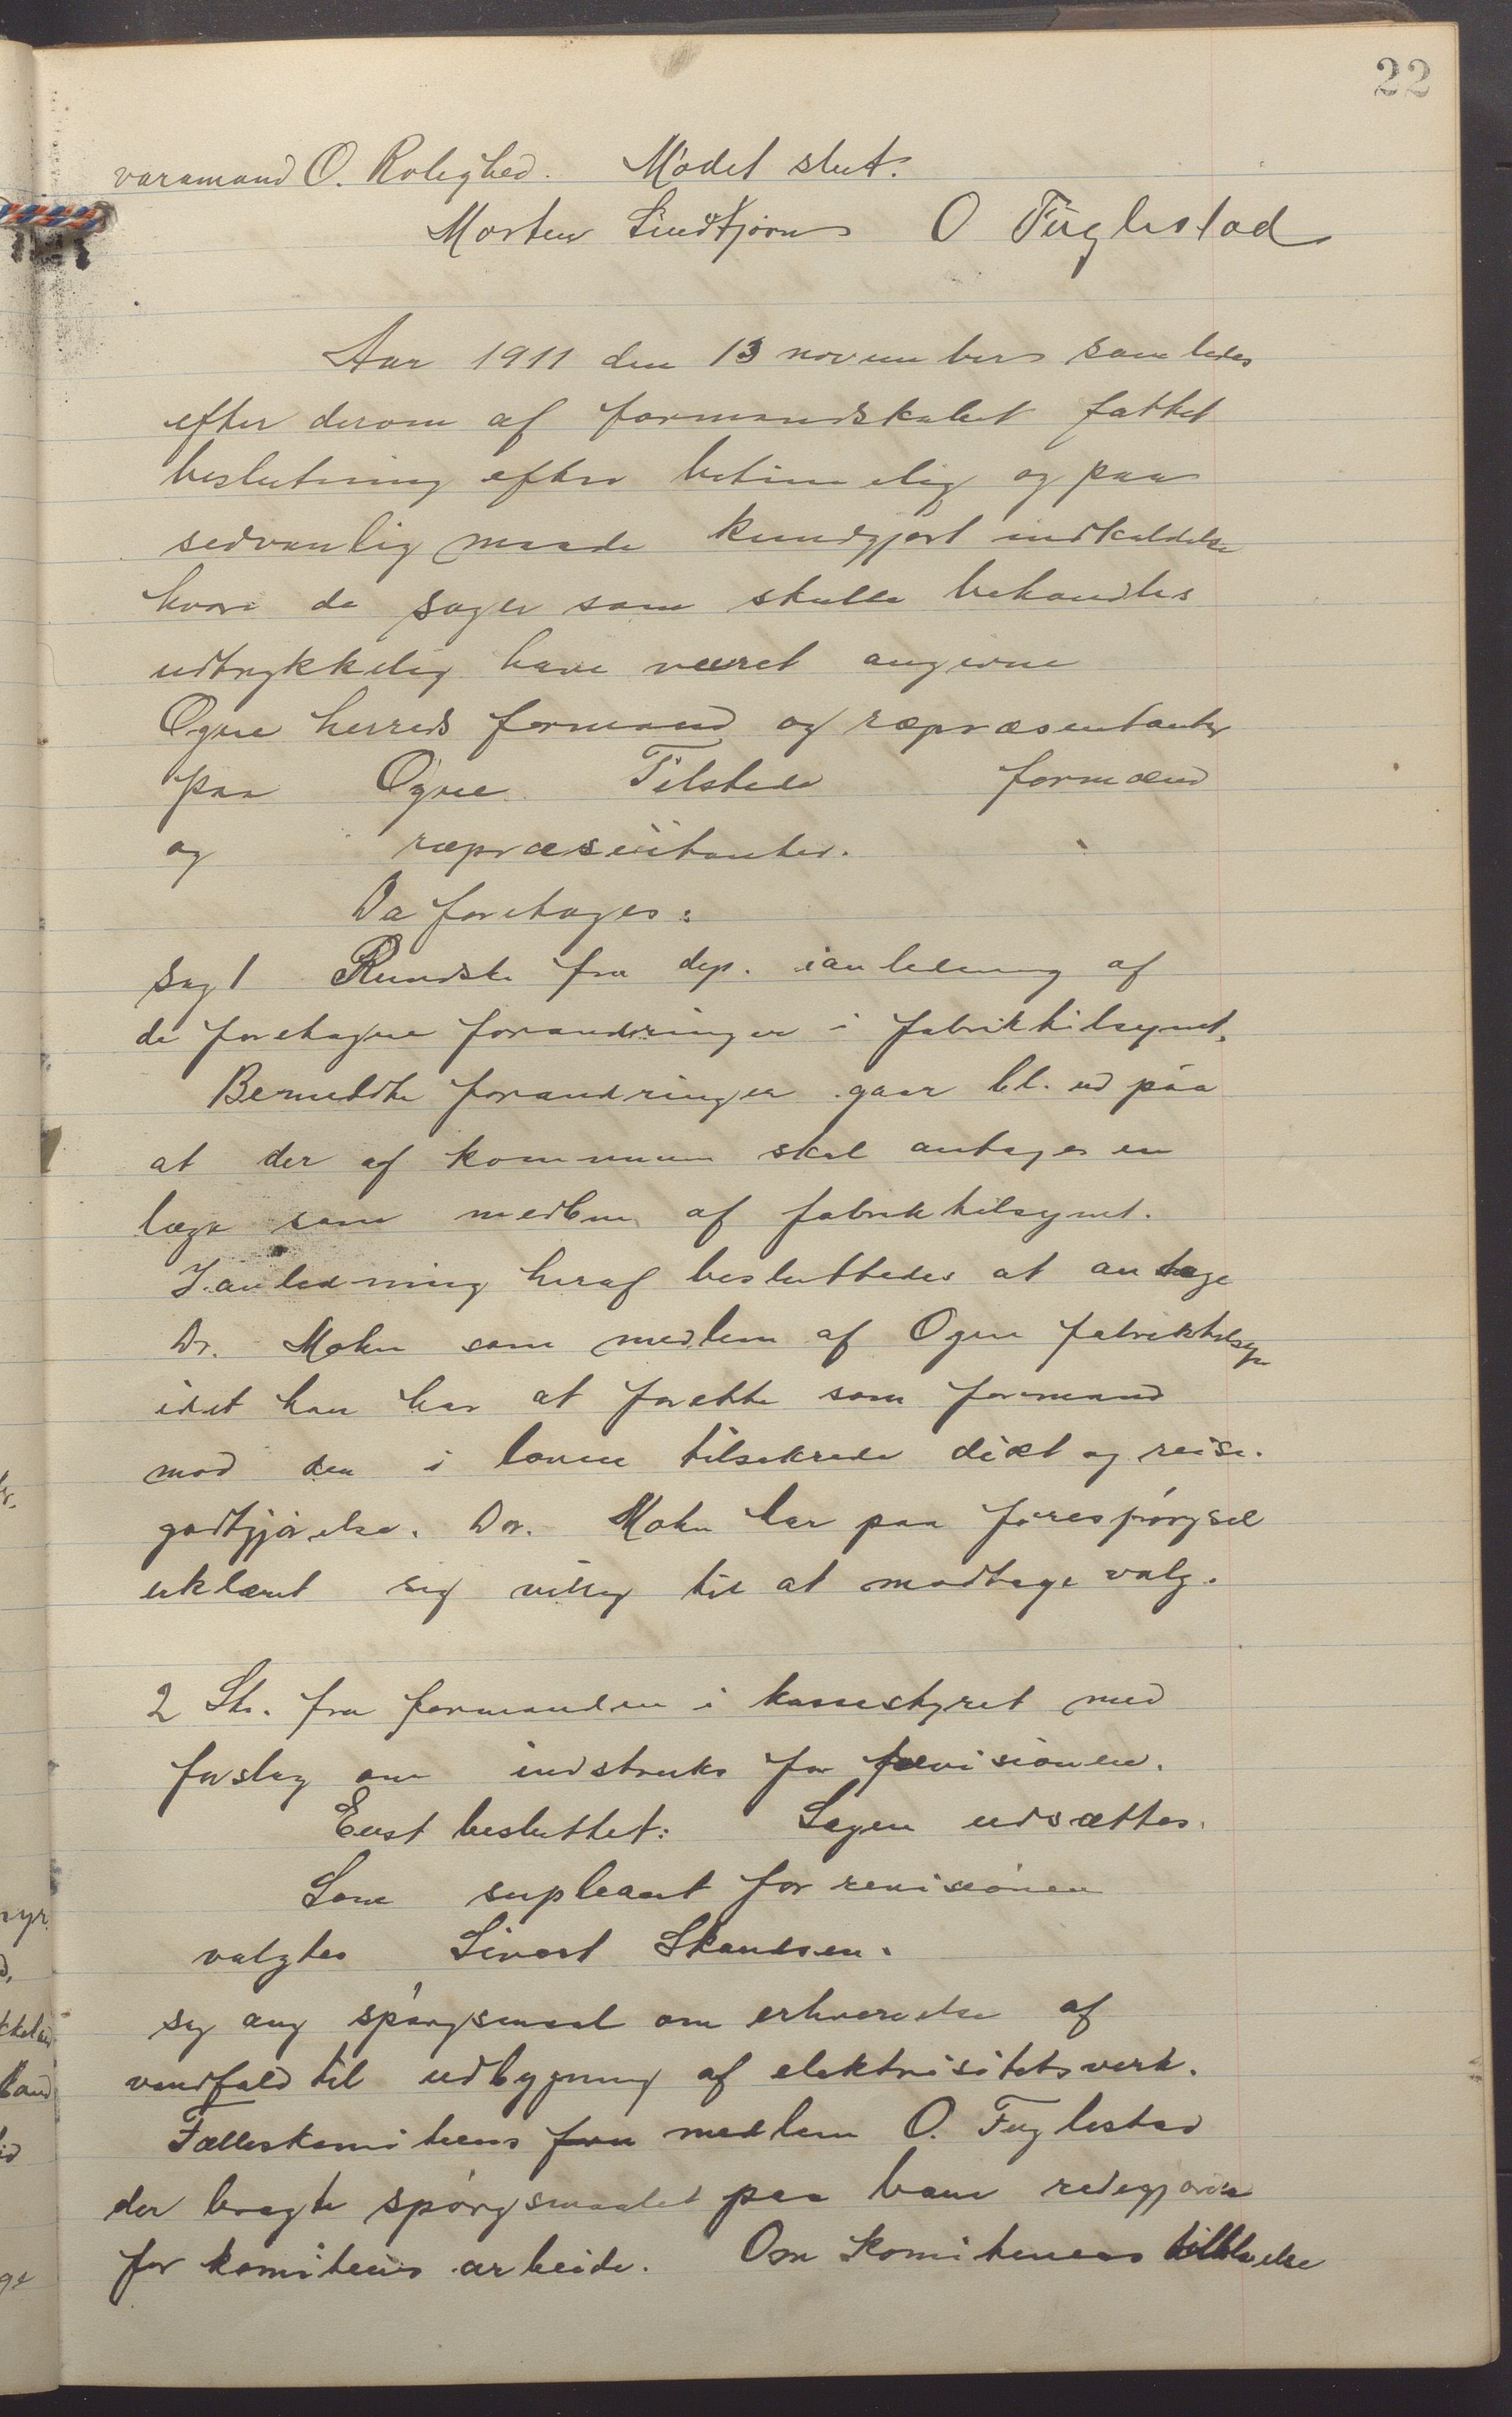 22
varamand O. Rolighed. Mødet slut.
Morten Lindtjørn O Fuglestad
Aar 1911 den 13 november samledes
efter derom af formandskabet fattet
beslutning efter betimelig og paa
sedvanlig maade kundgjort indkaldelse
hvori de sager som skulle behandles
udtrykkelig have været angivne
Ogne herreds formænd og repræsentanter
paa Ogne Tilstede formænd
og repræsentanter.
Da foretages:
Sag 1 Rundskr fra dep. ianledning af
de foretagne forandringer i fabriktilsynet.
Bemeldte forandringer gaar bl. ud paa
at der af kommunen skal antages en
læge som medlem af fabriktilsynet.
I anledning heraf besluttedes at antage
Dr. Mohn som medlem af Ogne fabriktilsyn
idet han har at forette som formand
mod den i loven tilsikrede diæt og reise-
godtgjørelse. Dr. Mohn har paa forespørgsel
erklæret sig villig til at modtage valg.
2 Skr. fra formanden i kassestyret med
forslag om indstruks for revisionen.
Enst besluttet: Sagen udsættes.
Som supleant for revisionen
valgtes Sivert Skandsen.
Sag ang spørgsmaal om erhvervelse af
vandfald til udbygning af elektrisitetsverk.
Fælleskomiteens fra medlem O. Fuglestad
der bragte spørgsmaalet paa bane redegjorde
for komiteens arbeide. Om komiteens